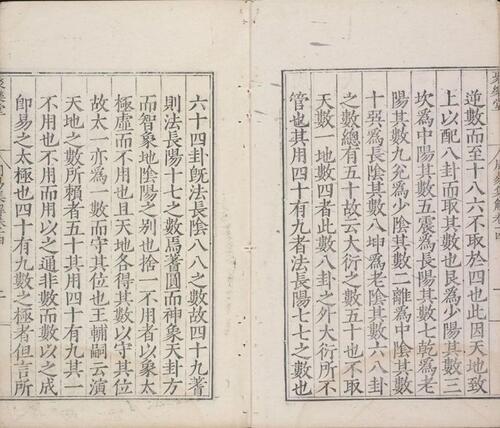 逆數而至十八六不取於四也此因天地致
上以配八卦而取其數也艮為少陽其數三
坎為中陽其數五震為長陽其數七乾為老
陽其數九兌為少陰其數二離為中陰其數
十巽為長陰其數八坤為老陰其數六八卦
之數總有五十故云大衍之數五十也不取
天數一地數四者此數八卦之外大衍所不
管也其用四十有九者法長陽七七之數也
六十四卦旣法長陰八八之數故四十九蓍
則法長陽十七之數焉蓍圓而神象天卦方
而智象地陰陽之别也捨一不用者以象太
極虛而不用也且天地各得其數以守其位
故太一亦為一數而守其位也王輔嗣云演
天地之數所賴者五十其用四十有九其一
不用也不用而用以之通非數而數以之成
即易之太極也四十有九數之極者但言所